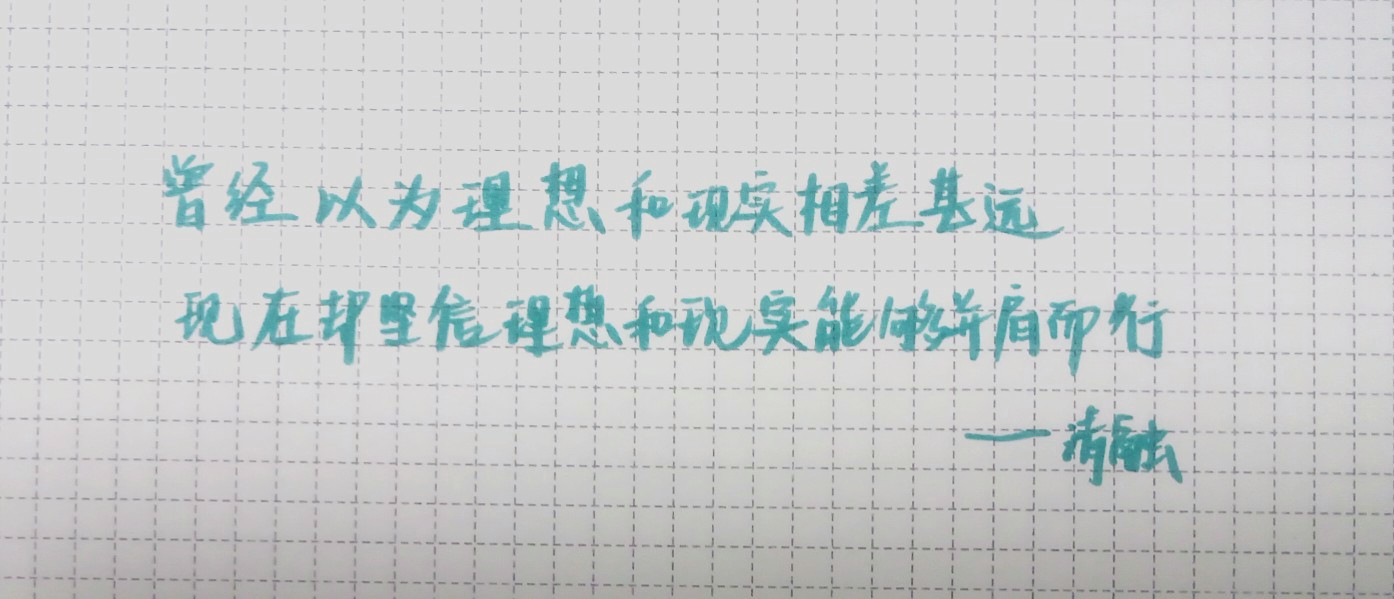 曾经以为理想和现实相差甚远
现在却坚信理想和现实能够并肩而行
——清融